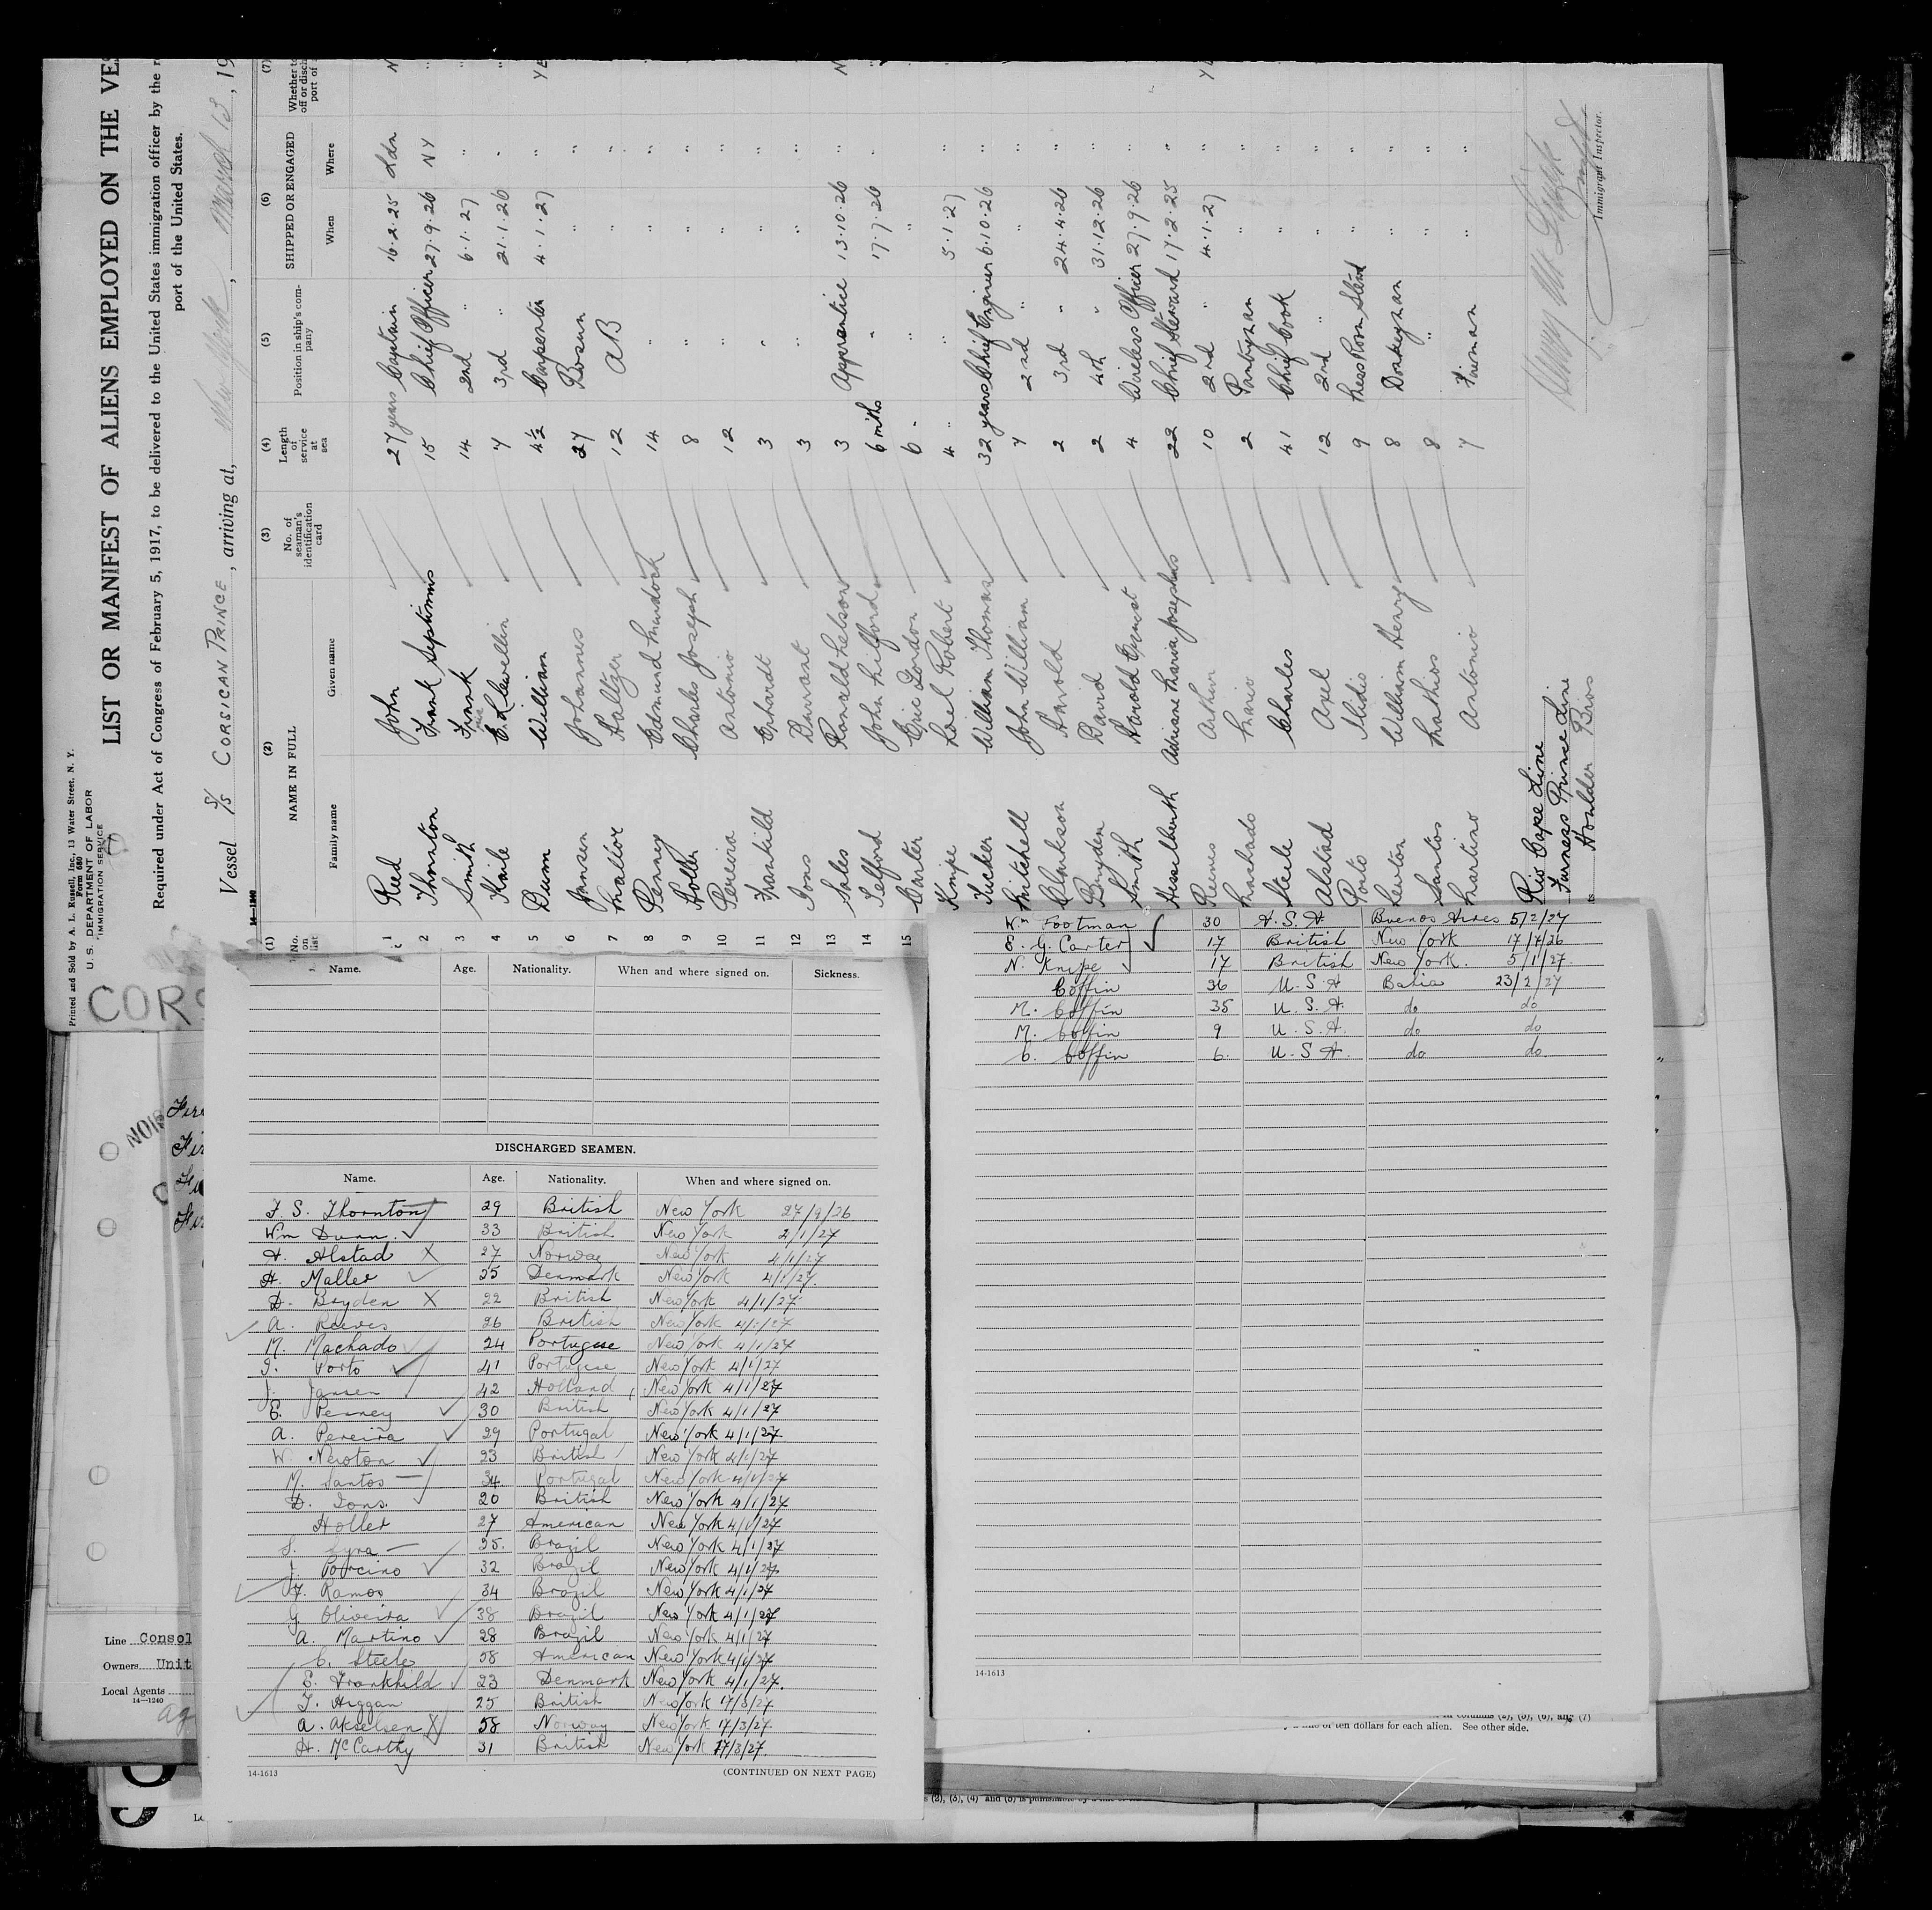 Printed and Sold by A. L. Russell, Inc., 13 Water Street, N. Y.
Form 680
U. S. DEPARTMENT OF LABOR
IMMIGRATION SERVICE
LIST OR MANIFEST OF ALIENS EMPLOYED ON THE VES
Required under Act of Congress of February 5, 1917, to be delivered to the United States immigration officer by the r
port of the United States.
Vessel S/S CORSICAN PRINCE, arriving at, New York, March 13, 19
14-1240
(1) (2) (3) (4) (5) (6) (7)
No. on list NAME IN FULL No. of seaman's identification card Length of service at sea Position in ship's company SHIPPED OR ENGAGED
Family name Given name When Where
1 Reed John 27 years Captain 16.2.25 Ldn
2 Thornton Frank Septimus 15 Chief Officer 27.9.26 NY
3 Smith Frank 14 2nd " 6.1.27 "
4 E. Llewellin 7 3rd " 21.1.26 "
5 Dunn William 4½ Carpenter 4.1.27 " YE
6 Jansen Johannes 27 Bosun " "
7 12 AB " "
8 Penney Edmund Murdock 14 " " "
9 Holler Charles Joseph 8 " " "
10 Pereira Antonio 12 " " "
11 Frankild Erhardt 3 " " "
12 Ions Durrant 3 " " "
13 Sales Ronald Nelson 3 Apprentice 13.10.26 " N
14 Telford John 6 mths " 17.7.26 "
15 Carter Eric Gordon 6 " " " "
Knipe Noel Robert 4 " " 5.1.27 "
Tucker William Thomas 32 years Chief Engineer 6.10.26 "
Mitchell John William 7 2nd " " "
Clarkson Harold 2 3rd " 24.4.26 "
Bryden David 2 4th " 31.12.26 "
Smith Harold Ernest 4 Wireless Officer 27.9.26 "
Hesselberth Adriane Maria Josephus 22 Chief Steward 17.2.25 "
Reeves Arthur 10 2nd " 4.1.27 "
Machado Mario 2 Pantryman " "
Steele Charles 41 Chief Cook " "
Alstad Axel 12 2nd " " "
Porto Ilidio 9 Mess Room Stwd " "
Newton William Henry 8 Donkeyman " "
Santos Mathios 8 " " "
Martino Antonio 7 Fireman " "
Rio Cape Line
Furness Prince Line
Houlder Bros
Immigrant Inspector.
CORS
Name. Age. Nationality. When and where signed on. Sickness.
DISCHARGED SEAMEN.
Name. Age. Nationality. When and where signed on.
F. S. Thornton 29 British New York 27/9/26
Wm Dunn 33 British New York 2/1/27
A. Alstad X 27 Norway New York 4/1/27
H. Maller 25 Denmark New York 4/1/27.
D. Bryden X 22 British New York 4/1/27
A. Reeves 26 British New York 4/1/27
M. Machado 24 Portugese New York 4/1/27
I. Porto 41 Portugese New York 4/1/27
J. Jansen 42 Holland New York 4/1/27
E. Penney 30 British New York 4/1/27
A. Pereira 29 Portugal New York 4/1/27
W. Newton 23 British New York 4/1/27
M. Santos 34 Portugal New York 4/1/27
D. Ions. 20 British New York 4/1/27
Holler 27 American New York 4/1/27
S. Lyra 25. Brazil New York 4/1/27
J. Porcino 32 Brazil New York 4/1/27
F. Ramos 34 Brazil New York 4/1/27
G. Oliveira 38 Brazil New York 4/1/27
A. Martino 28 Brazil New York 4/1/27
C. Steele 58 American New York 4/1/27
E. Frankhild 23 Denmark New York 4/1/27.
T. Higgan 25 British New York 17/3/27
A. Akselsen X 58 Norway New York 17/3/27
H. McCarthy 31 British New York 17/3/27.
14-1613 (CONTINUED ON NEXT PAGE)
Wm Footman 30 U.S.A Buenos Aires 5/2/27
E. G. Carter 17 British New York 17/7/26
N. Knipe 17 British New York. 5/1/27.
Coffin 36 U.S.A Bahia 23/2/27
M. Coffin 35 U.S.A. do do
M. Coffin 9 U.S.A. do do
C. Coffin 6. U.S.A. do do.
14-1613
Line Consol
Owners Unit
Local Agents
14-1240
in columns (2), (5), (6), and (7)
of ten dollars for each alien. See other side.
(2), (3), (4) and (5) is punishable by a